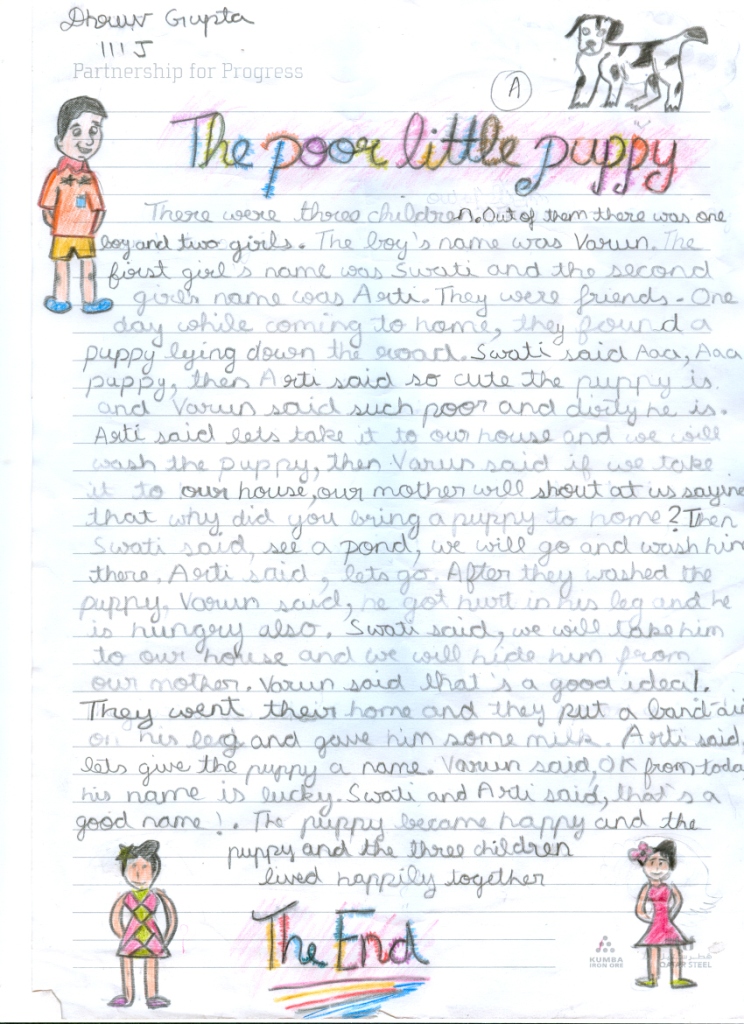 Dhruv Gupta
III J
Partnership for Progress
A
The poor little puppy
There were three children. Out of them there was one
boy and two girls. The boy's name was Varun. The
first girl's name was Swati and the second
girls name was Arti. They were friends. One
day while coming to home, they found a
puppy lying down the road. Swati said Aaa, Aaa
puppy, then Arti said so cute the puppy is
and Varun said such poor and dirty he is.
Arti said lets take it to our house and we will
wash the puppy, then Varun said if we take
it to our house, our mother will shout at us saying
that why did you bring a puppy to home? Then
Swati said, see a pond, we will go and wash him
there. Arti said, lets go. After they washed the
puppy, Varun said, he got hurt in his leg and he
is hungry also. Swati said, we will take him
to our house and we will hide him from
our mother. Varun said that's a good idea!.
They went their home and they put a band-aid
on his leg and gave him some milk. Arti said,
lets give the puppy a name. Varun said, OK from today
his name is lucky. Swati and Arti said, that's a
good name!. The puppy became happy and the
puppy and the three children
lived happily together
The End
KUMBA
IRON ORE
QATAR STEEL